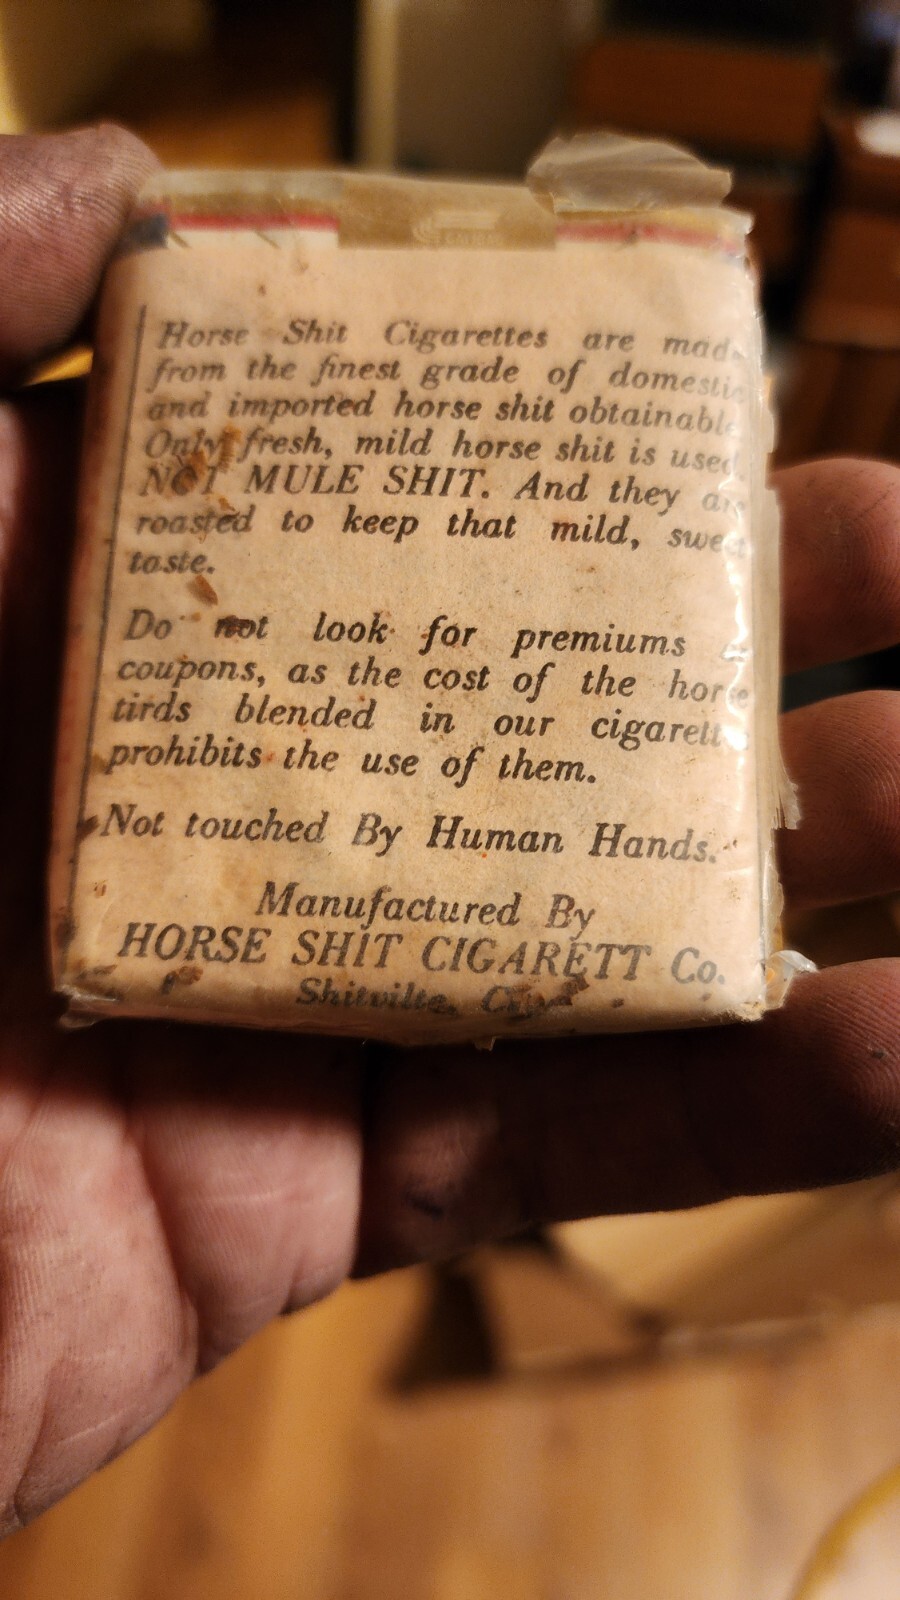 Horse Shit Cigarettes are made
from the finest grade of domestic
and imported horse shit obtainable
Only fresh, mild horse shit is used.
NOT MULE SHIT. And they are
roasted to keep that mild, sweet
taste.
Do not look for premiums
coupons, as the cost of the horse
tirds blended in our cigarett
prohibits the use of them.
Not touched By Human Hands.
Manufactured By
HORSE SHIT CIGARETT Co.
Shitville,